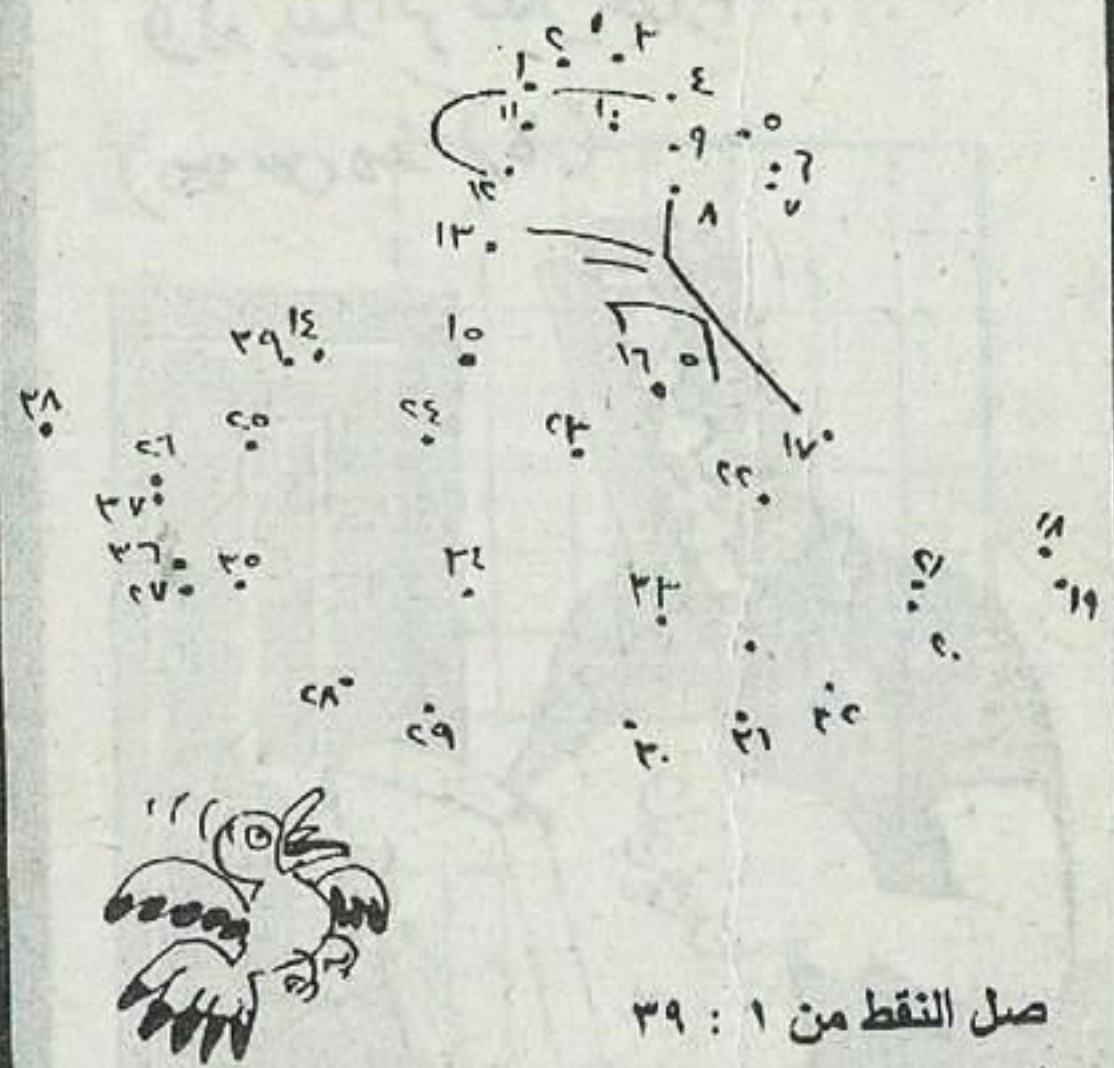 ١
٢
٣
٤
٥
٦
٧
٨
٩
١٠
١١
١٢
١٣
١٤
١٥
١٦
١٧
١٨
١٩
٢٠
٢١
٢٢
٢٣
٢٤
٢٥
٢٦
٢٧
٢٨
٢٩
٣٠
٣١
٣٢
٣٣
٣٤
٣٥
٣٦
٣٧
٣٨
٣٩
صل النقط من ١ : ٣٩